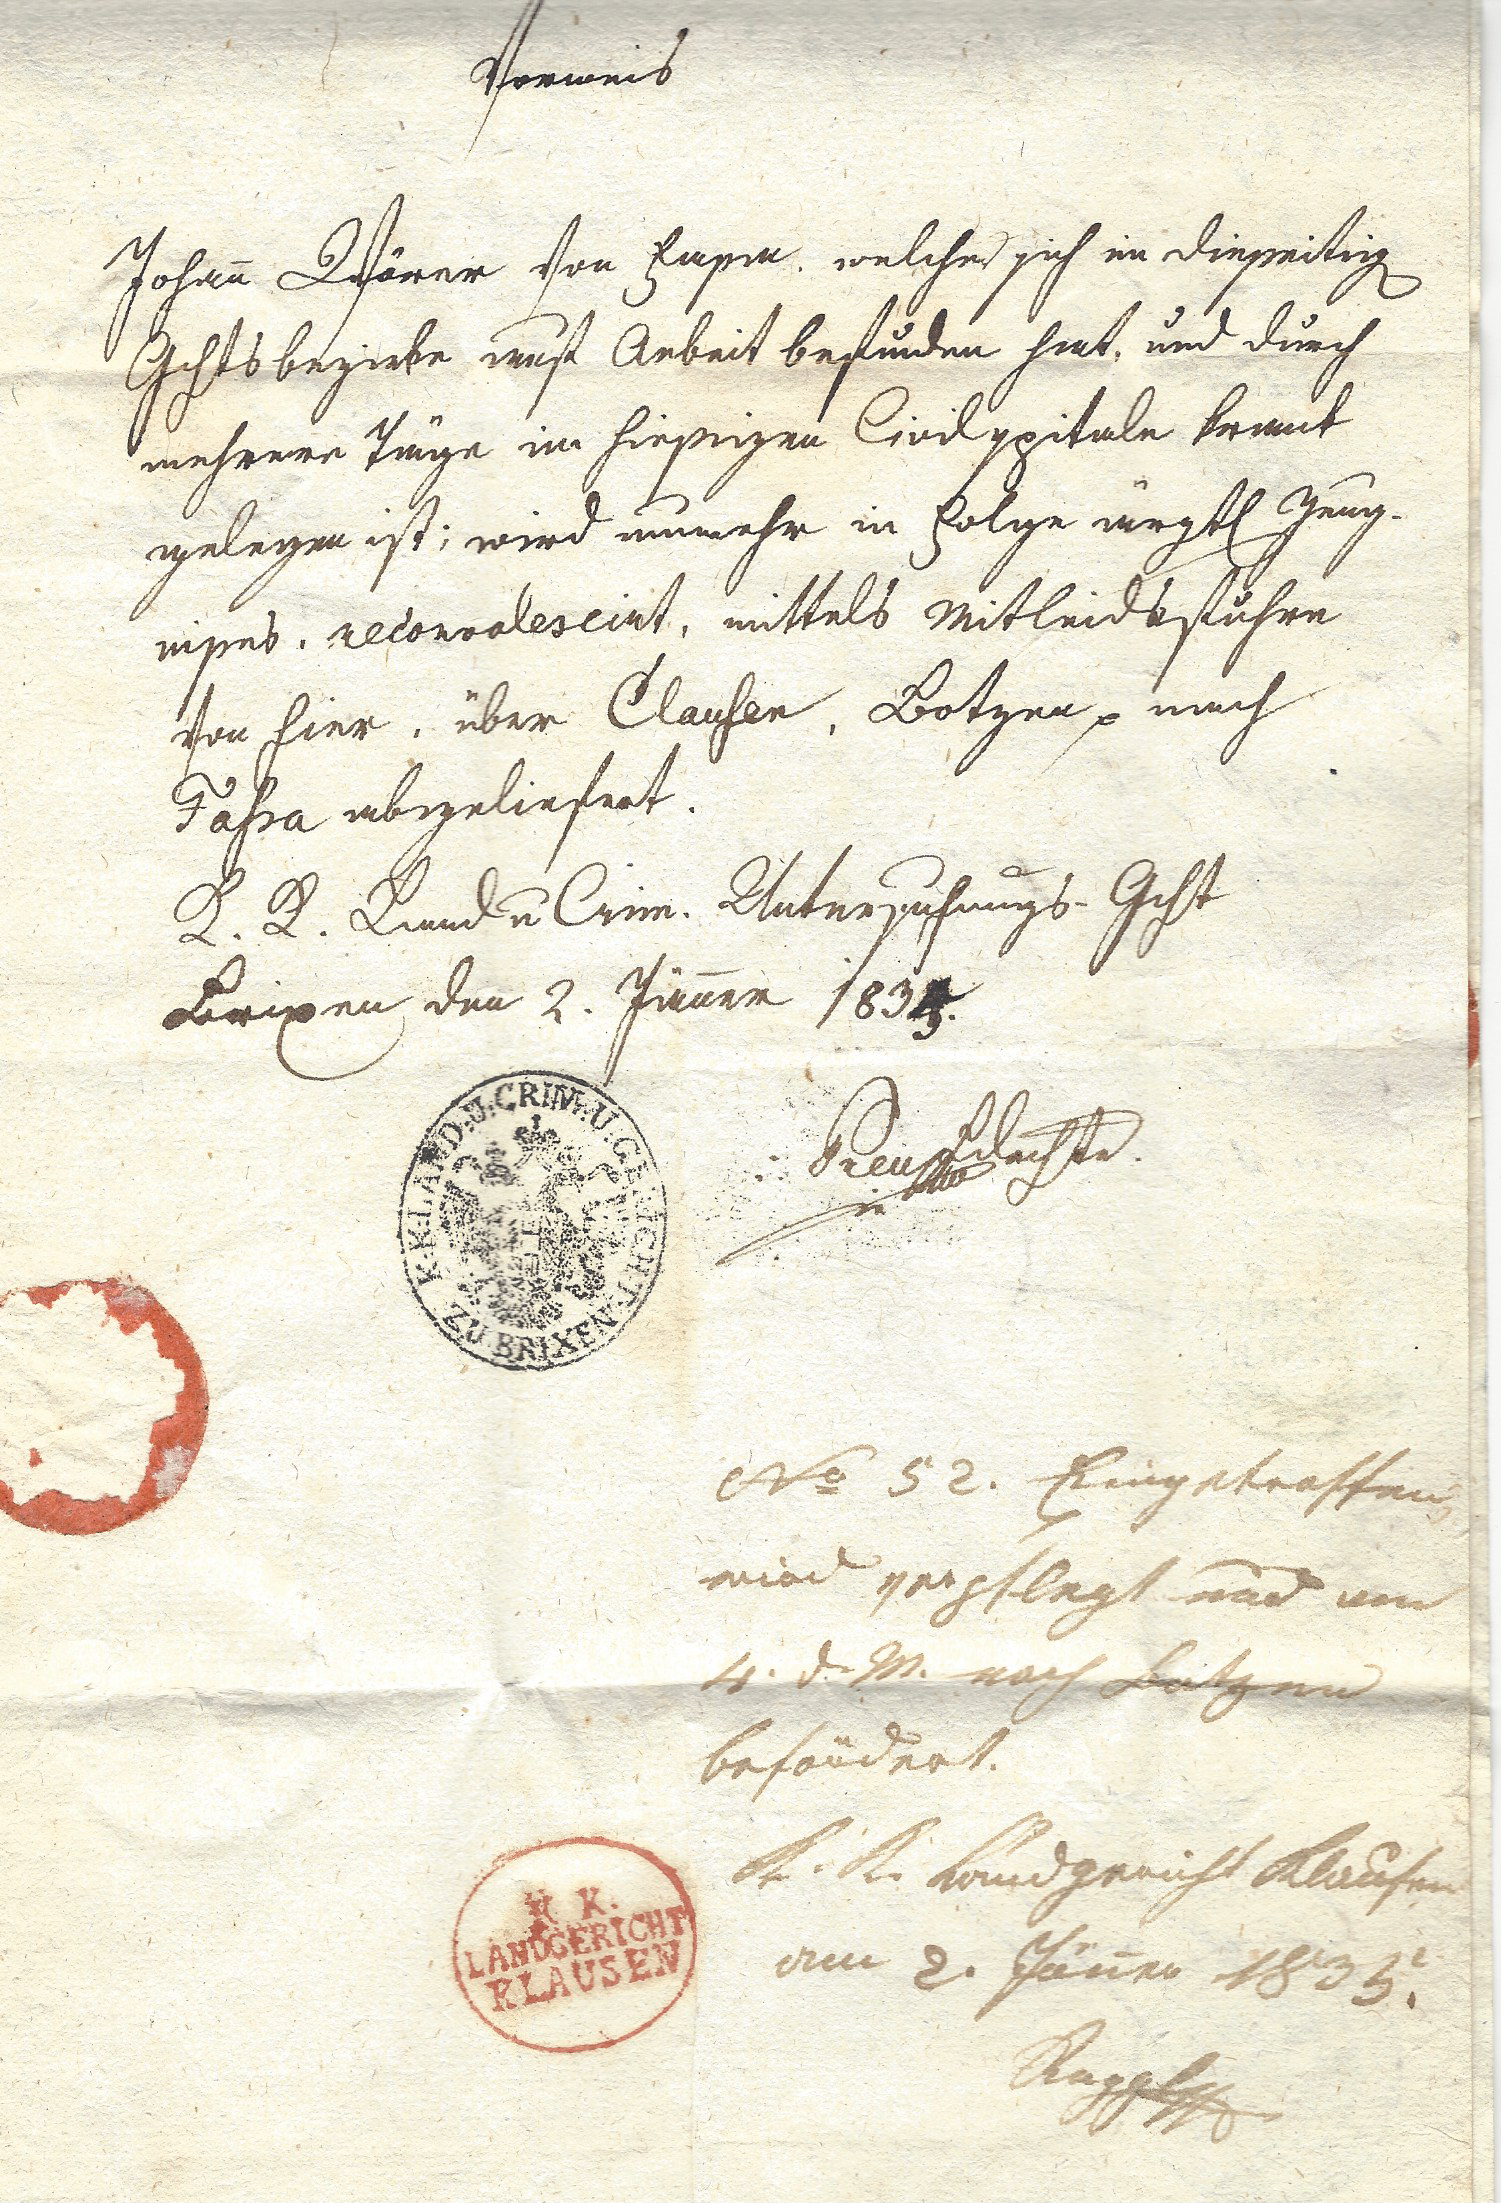 Vorweis
Johann Wörer von Fassa. welcher sich im diesseitig
Gchtsbezirke auf Arbeit befunden hat, und durch
mehrere Täge im hiesigen Civilspitale krank
gelegen ist; wird nunmehr in Folge ärztl Zeug-
nisses, reconvalescirt, mittels Mitleidsfuhre
von hier, über Clausen, Botzen nach
Fassa abgeliefert.
K. K. Land u Crim. Untersuchungs-Gcht
Brixen den 2. Jänner 1835.
K.K. LAND. U. CRIM. U. GERICHT ZU BRIXEN
No 52. Eingetroffen,
wird verpflegt und am
4. d. M. nach Botzen
befördert.
K. K. Landgericht Klausen
am 2. Jänner 1835.
K. K.
LANDGERICHT
KLAUSEN